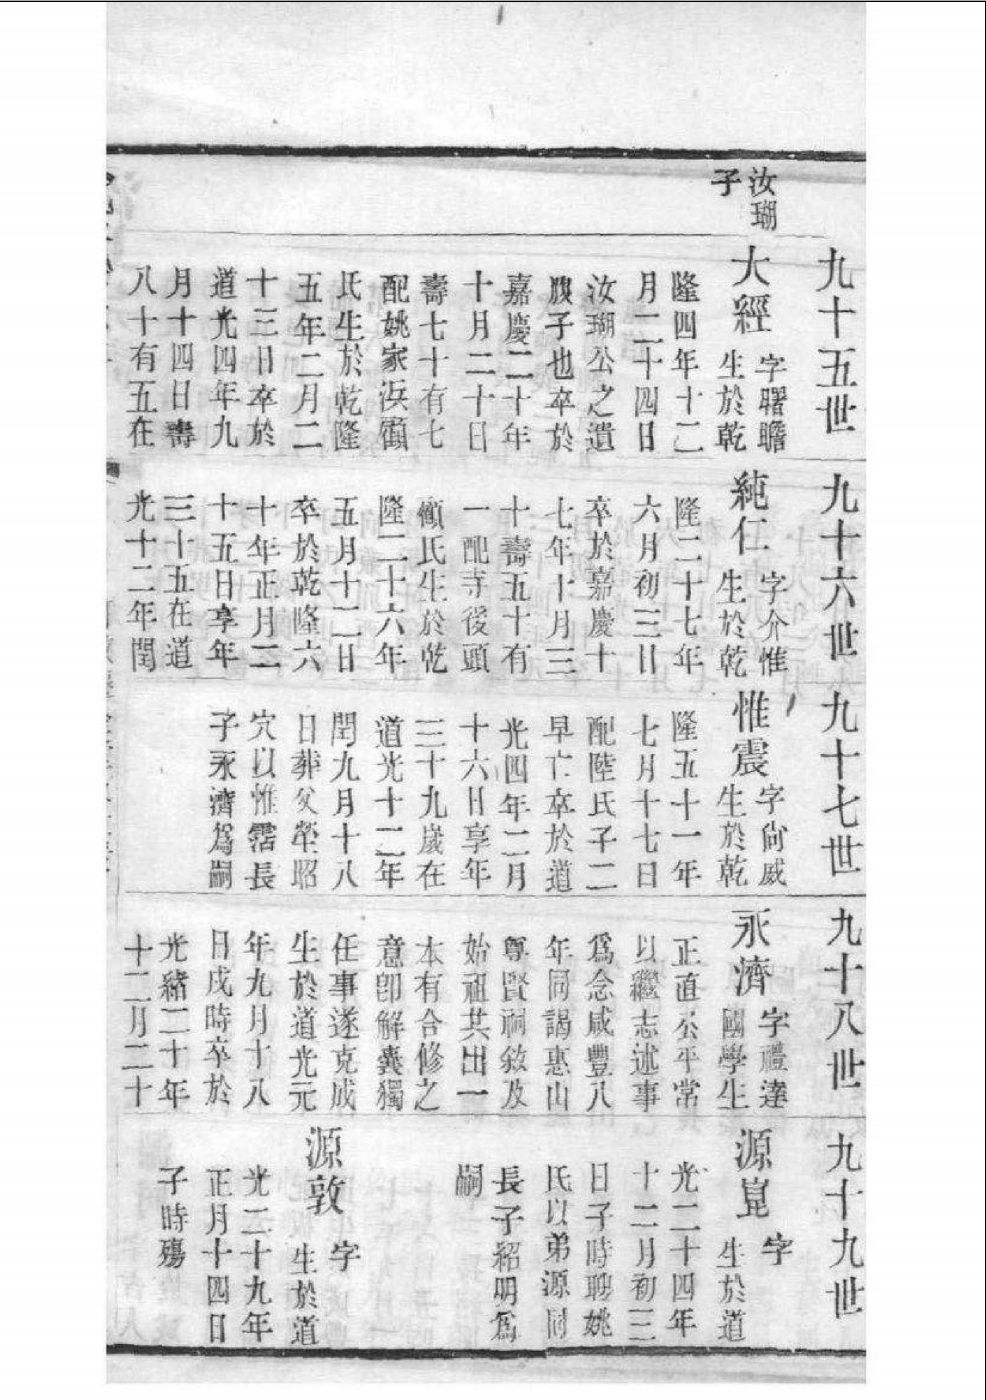 汝瑚
子
九十五世
大經
字曙瞻
生於乾
隆四年十二
月二十四日
汝瑚公之遺
腹子也卒於
嘉慶二十年
十月二十日
壽七十有七
配姚家浜顧
氏生於乾隆
五年二月二
十三日卒於
道光四年九
月十四日壽
八十有五在
九十六世
純仁
字介惟
生於乾
隆二十七年
六月初三日
卒於嘉慶十
七年十月三
十壽五十有
一配寺後頭
顧氏生於乾
隆二十六年
五月十二日
卒於乾隆六
十年正月二
十五日享年
三十五在道
光十二年閏
九十七世
惟震
字尙威
生於乾
隆五十一年
七月十七日
配陸氏子二
早亡卒於道
光四年二月
十六日享年
三十九歲在
道光十二年
閏九月十八
日葬父塋昭
穴以惟霑長
子永濟爲嗣
九十八世
永濟
字禮達
國學生
正直公平常
以繼志述事
爲念咸豐八
年同謁惠山
尊賢祠敘及
始祖共出一
本有合修之
意卽解囊獨
任事遂克成
生於道光元
年九月十八
日戌時卒於
光緒二十年
十二月二十
九十九世
源崑
字
生於道
光二十四年
十二月初三
日子時聘姚
氏以弟源同
長子紹明爲
嗣
源敦
字
生於道
光二十九年
正月十四日
子時殤